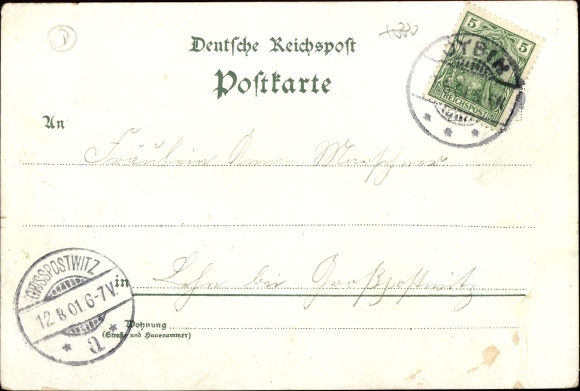 5 5
STEIN
REICHSPOST
Deutsche Reichspost
Postkarte
An
Fräulein Anna Marschner
in Lehn bei Großpostwitz
GROSSPOSTWITZ
12.8.01.6-7V.
a
Wohnung
(Straße und Hausnummer)